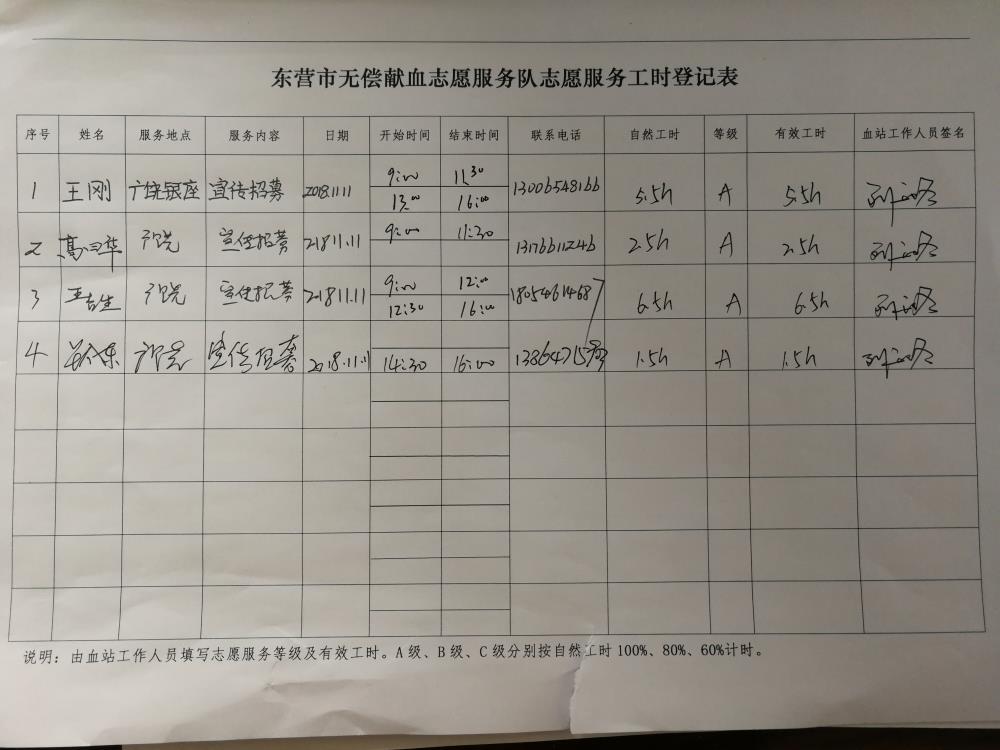 东营市无偿献血志愿服务队志愿服务工时登记表
序号 姓名 服务地点 服务内容 日期 开始时间 结束时间 联系电话 自然工时 等级 有效工时 血站工作人员签名
1 王刚 银座 宣传招募 2018.11.11 9:00 11:30 13006548166 5.5h A 5.5h
13:00 16:00
2 宣传招募 218.11.11 9:00 11:30 13176611246 2.5h A 2.5h
3 宣传招募 2018.11.11 9:00 12:00 18054614687 6.5h A 6.5h
12:30 16:00
4 宣传招募 2018.11.11 14:30 16:00 1.5h A 1.5h
说明：由血站工作人员填写志愿服务等级及有效工时。A级、B级、C级分别按自然工时100%、80%、60%计时。